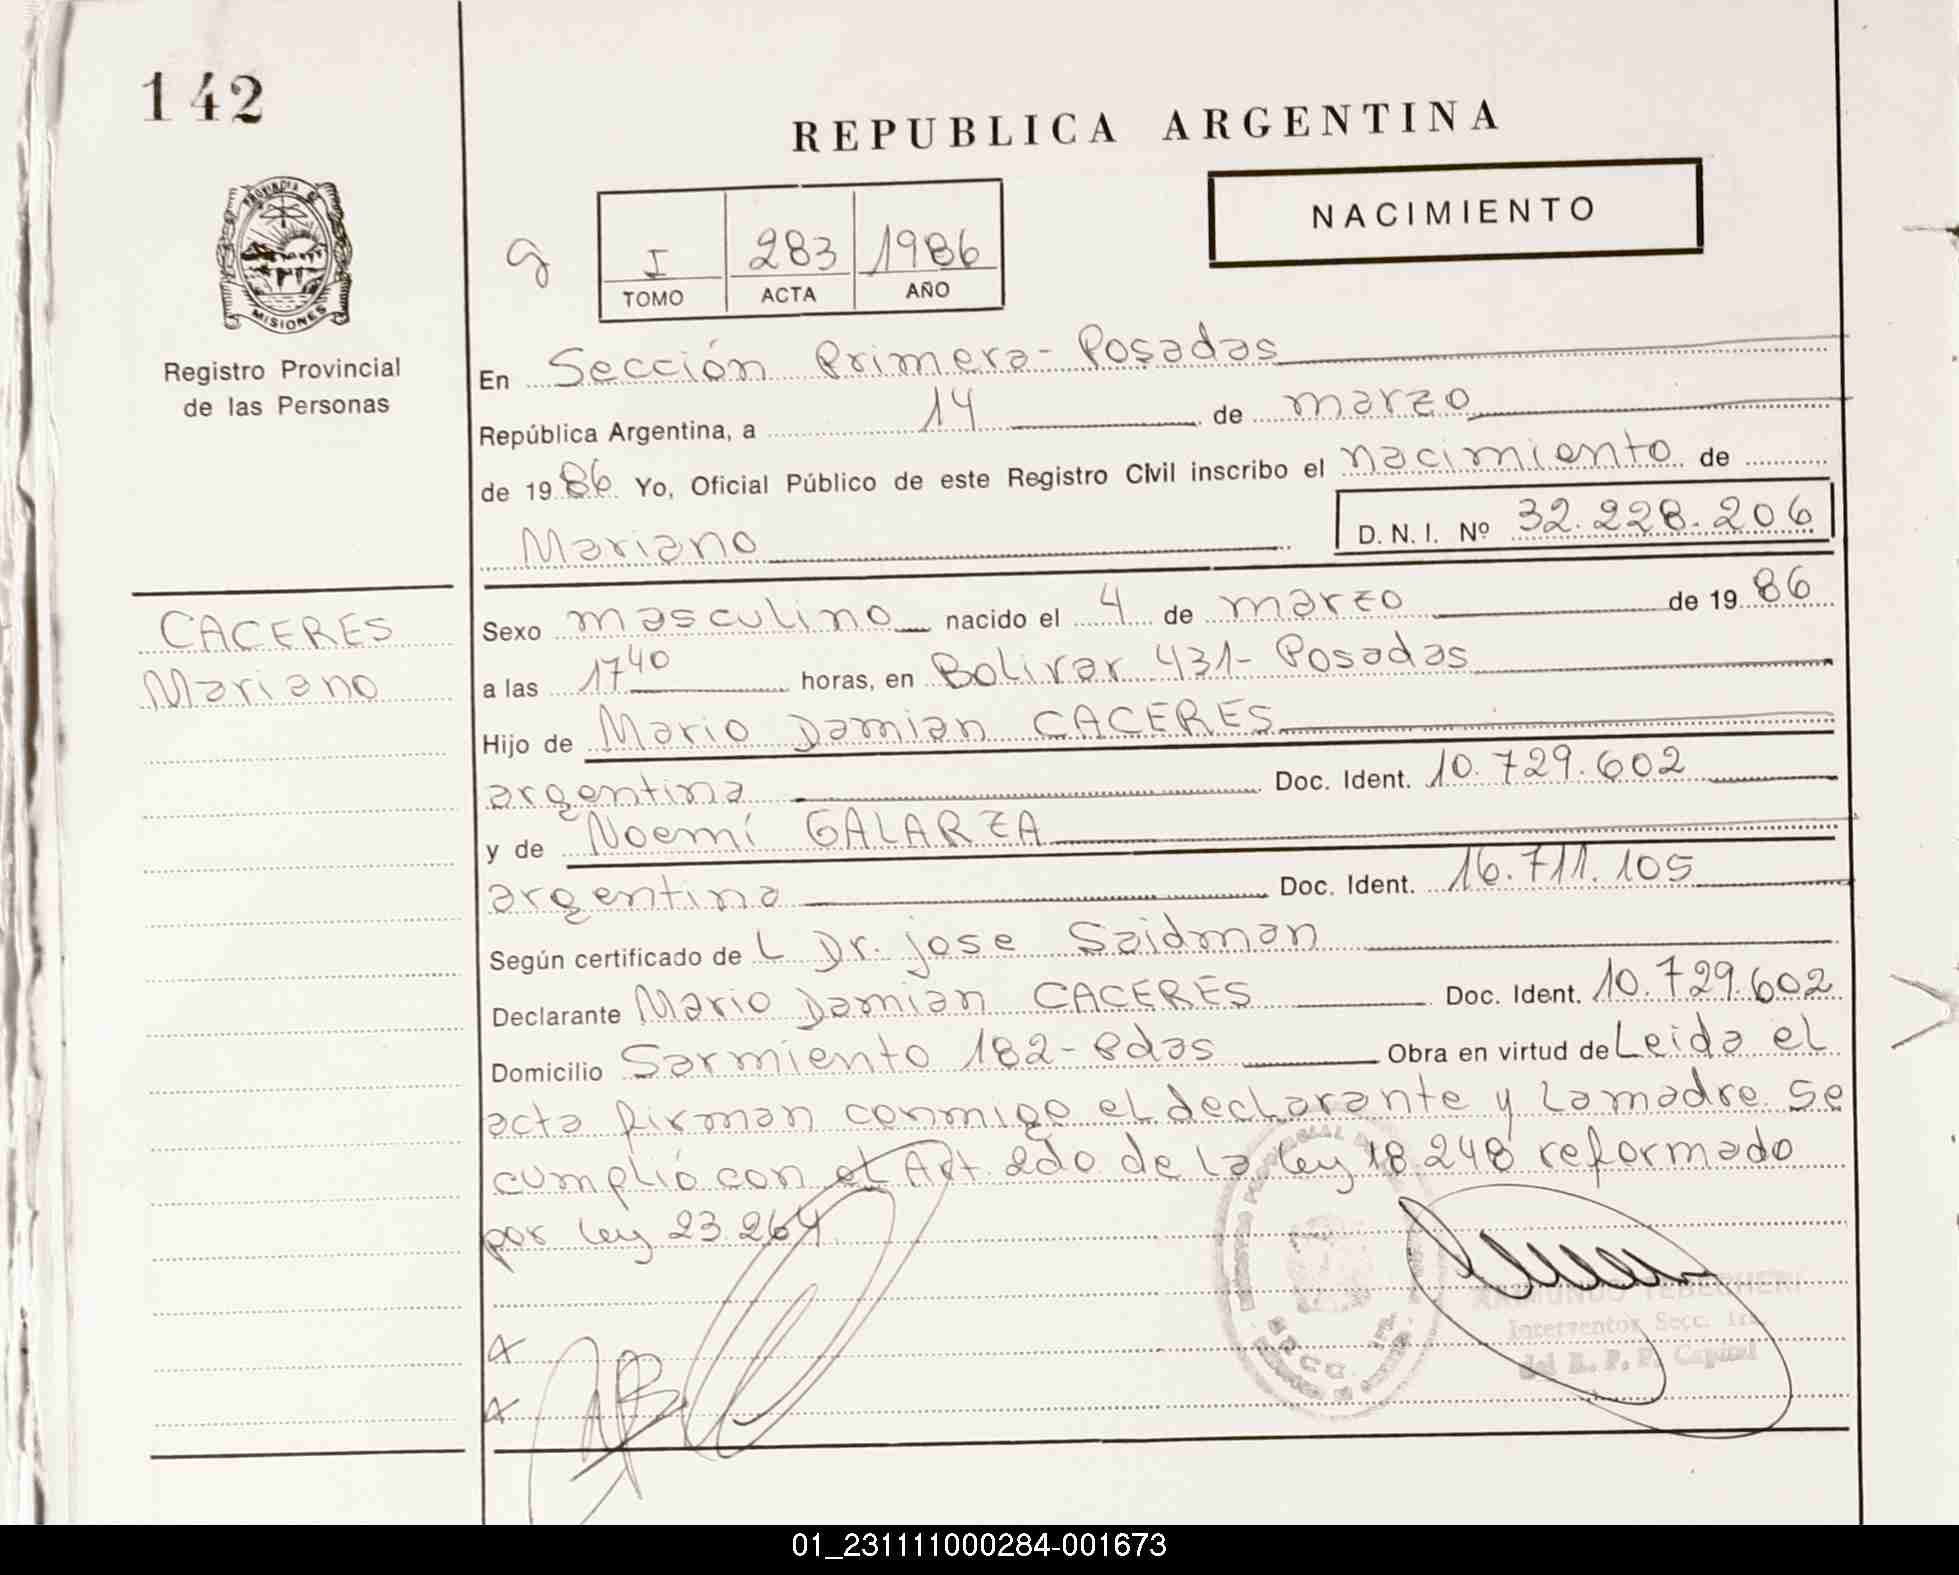 142
REPUBLICA ARGENTINA
NACIMIENTO
g
I 283 1986
TOMO ACTA AÑO
PROVINCIA DE
MISIONES
Registro Provincial
de las Personas
En Sección Primera - Posadas
República Argentina, a 14 de marzo
de 1986 Yo, Oficial Público de este Registro Civil inscribo el nacimiento de
Mariano D.N.I. Nº 32.228.206
CACERES
Mariano
Sexo masculino nacido el 4 de marzo de 1986
a las 17 40 horas, en Bolivar 431 - Posadas
Hijo de Mario Damian CACERES
argentina Doc. Ident. 10.729.602
y de Noemí GALARZA
argentina Doc. Ident. 16.711.105
Según certificado de L Dr. jose Saidman
Declarante Mario Damian CACERES Doc. Ident. 10.729.602
Domicilio Sarmiento 182 - Pdas Obra en virtud de Leida el
acta firman conmigo el declarante y la madre se
cumplió con el Art 2do de la ley 18 248 reformado
por ley 23 264
Interventor Secc. 1ra.
del R. P. P. Capital
01_231111000284-001673